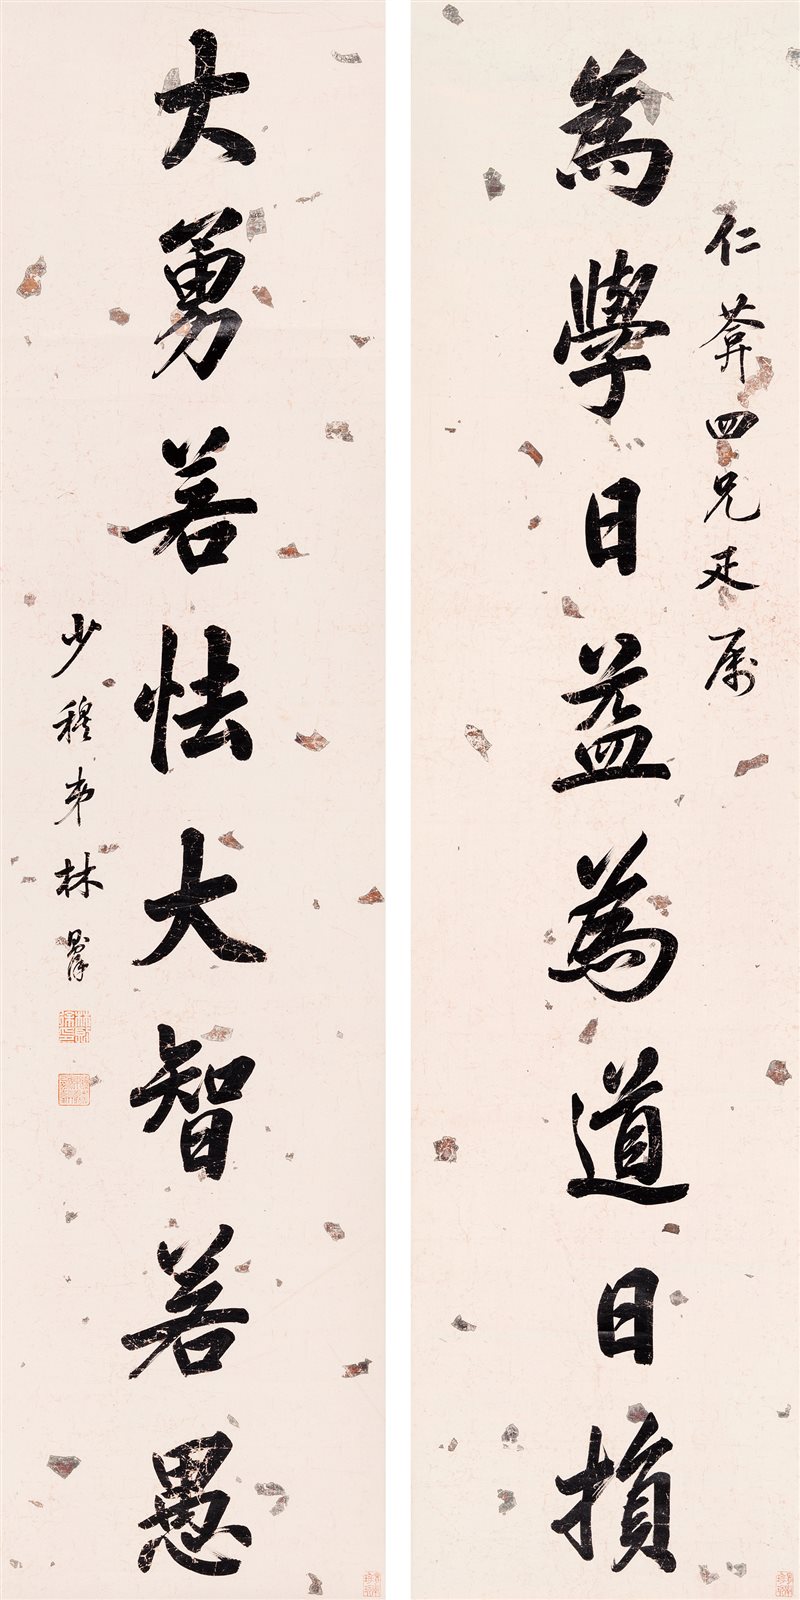 為學日益為道日損
仁葊四兄正属
大勇若怯大智若愚
少穆弟林則徐
林則徐印